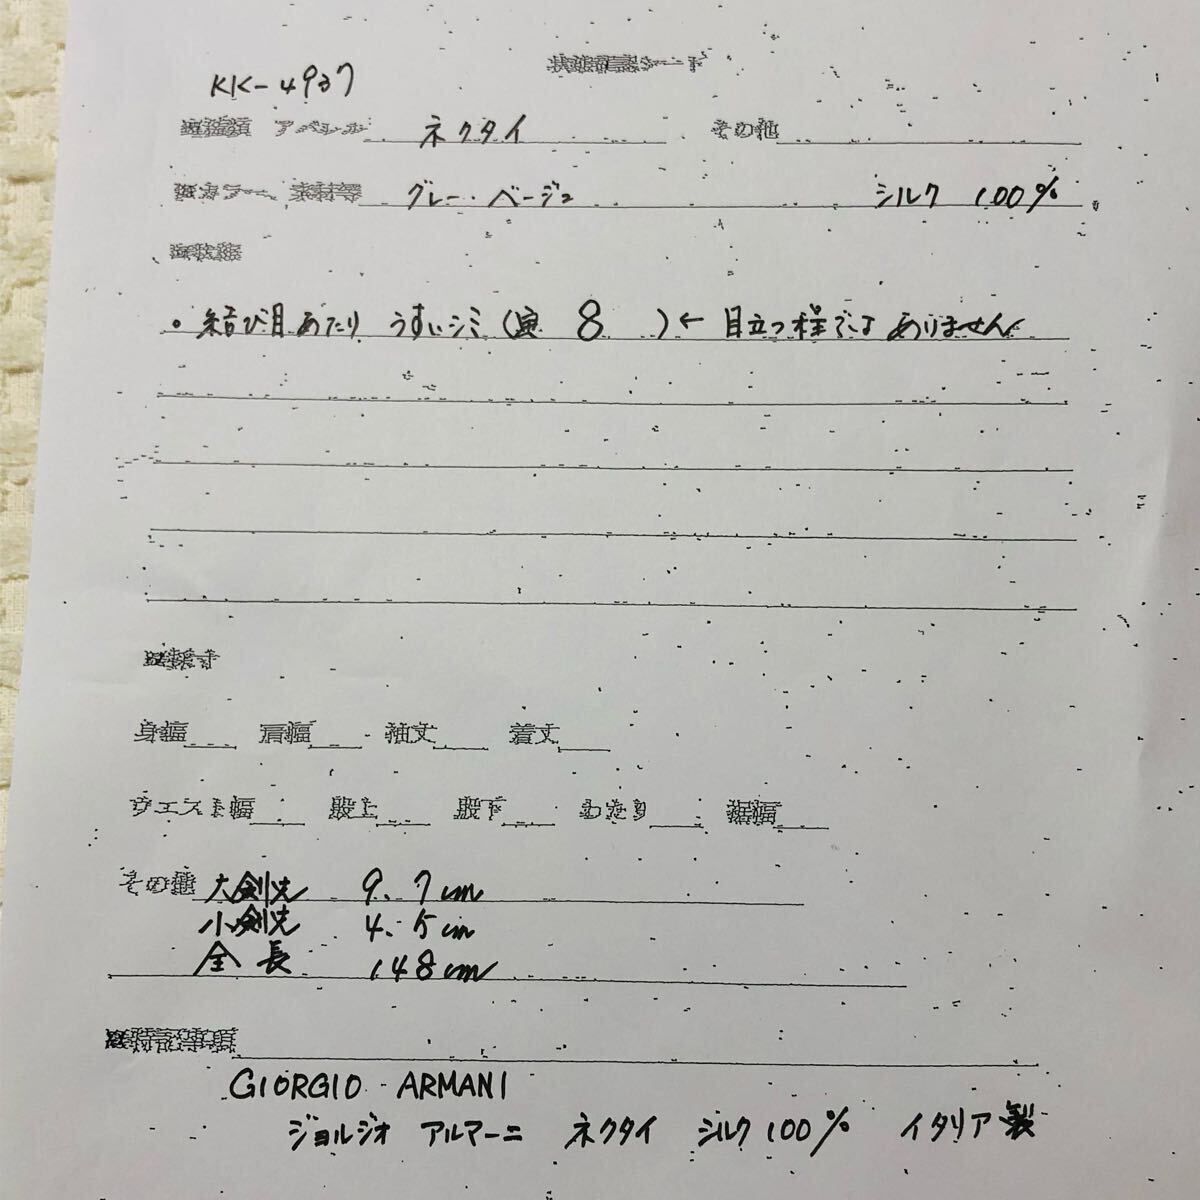 状態確認シート
KK-4937
種類 アパレル ネクタイ その他
カラー 素材等 グレー・ベージュ シルク 100%
状態
・結び目あたり うすいシミ(写 8 )← 目立つ程ではありません
採寸
身幅 肩幅 袖丈 着丈
ウエスト幅 股上 股下 わたり 裾幅
その他 大剣先 9.7cm
小剣先 4.5cm
全長 148cm
特記事項
GIORGIO ARMANI
ジョルジオ アルマーニ ネクタイ シルク100% イタリア製